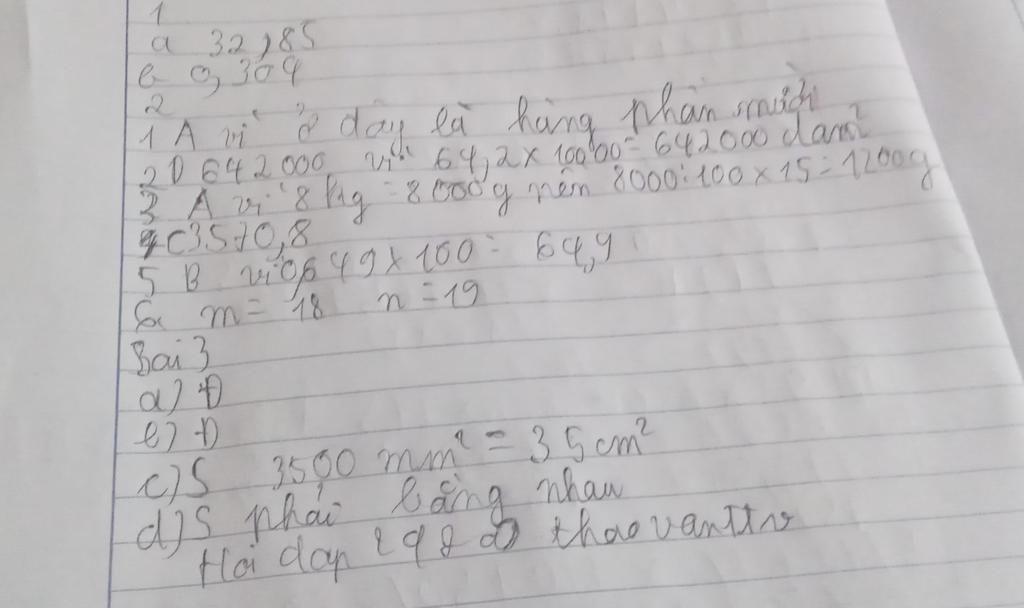 1
a 32,85
b 0,304
2
1 A vì ở dây là hàng phần mười
2 D 642000 vì 64,2 x 10000 = 642000 dam²
3 A vì 8 kg = 8000g nên 8000:100 x 15 = 1200g
4 C 3570,8
5 B vì 0,649 x 100 = 64,9
6 m = 18 n = 19
Bai 3
a) Đ
b) Đ
c) S 3500 mm² = 35 cm²
d) S phải bằng nhau
Hoi dap 247 thaovanttns